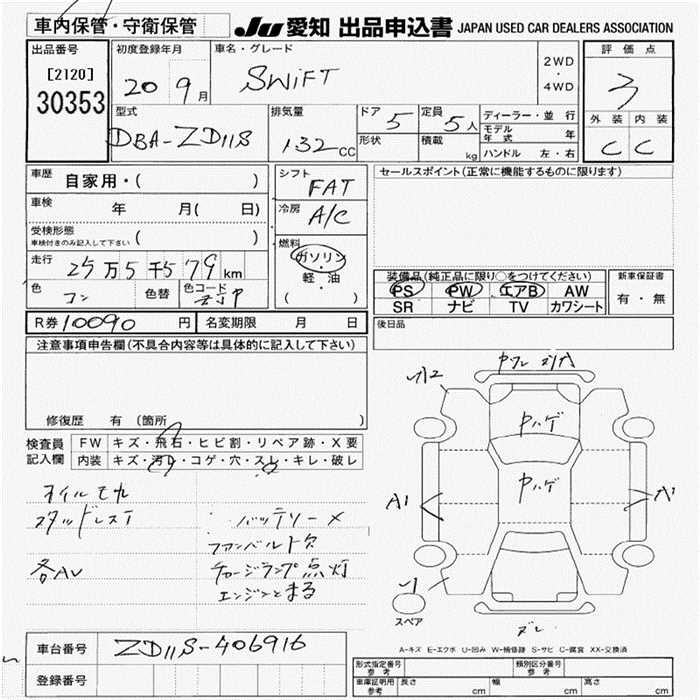 車内保管・守衛保管
JU 愛知 出品申込書 JAPAN USED CAR DEALERS ASSOCIATION
出品番号
[2120]
30353
初度登録年月
20 9月
車名・グレード
SWIFT
2WD
・
4WD
評価点
3
外装 内装
C C
型式
DBA-ZD11S
排気量
1.32 CC
ドア
5
定員
5人
形状
積載
kg
ディーラー・並行
モデル年式 年
ハンドル 左・右
車歴
自家用・( )
車検
年 月( 日)
受検形態
車検付きのみ記入して下さい ( )
走行
25万5千579 km
色
コン
色替
色コード
P
シフト
FAT
冷房
A/C
燃料
ガソリン
・
軽・油
( )
セールスポイント(正常に機能するものに限ります)
装備品(純正品に限り○をつけてください)
PS PW エアB AW
SR ナビ TV カワシート
新車保証書
有・無
R券 10090 円 名変期限 月 日
後日品
注意事項申告欄(不具合内容等は具体的に記入して下さい)
修復歴 有 (箇所 )
検査員
記入欄
FW キズ・飛石・ヒビ割・リペア跡・X要
内装 キズ・汚レ・コゲ・穴・スレ・キレ・破レ
オイルモレ
スタッドレス
バッテリーX
ファンベルト欠
各AU
チャージランプ点灯
エンジンとまる
中ハゲ
中ハゲ
A1
A1
スペア
ズレ
A-キズ E-エクボ U-凹み W-補修跡 S-サビ C-腐食 XX-交換済
車台番号
ZD11S-406916
登録番号
形式指定番号
参考
類別区分番号
参考
車庫証明用
参考
長さ cm 幅 cm 高さ cm